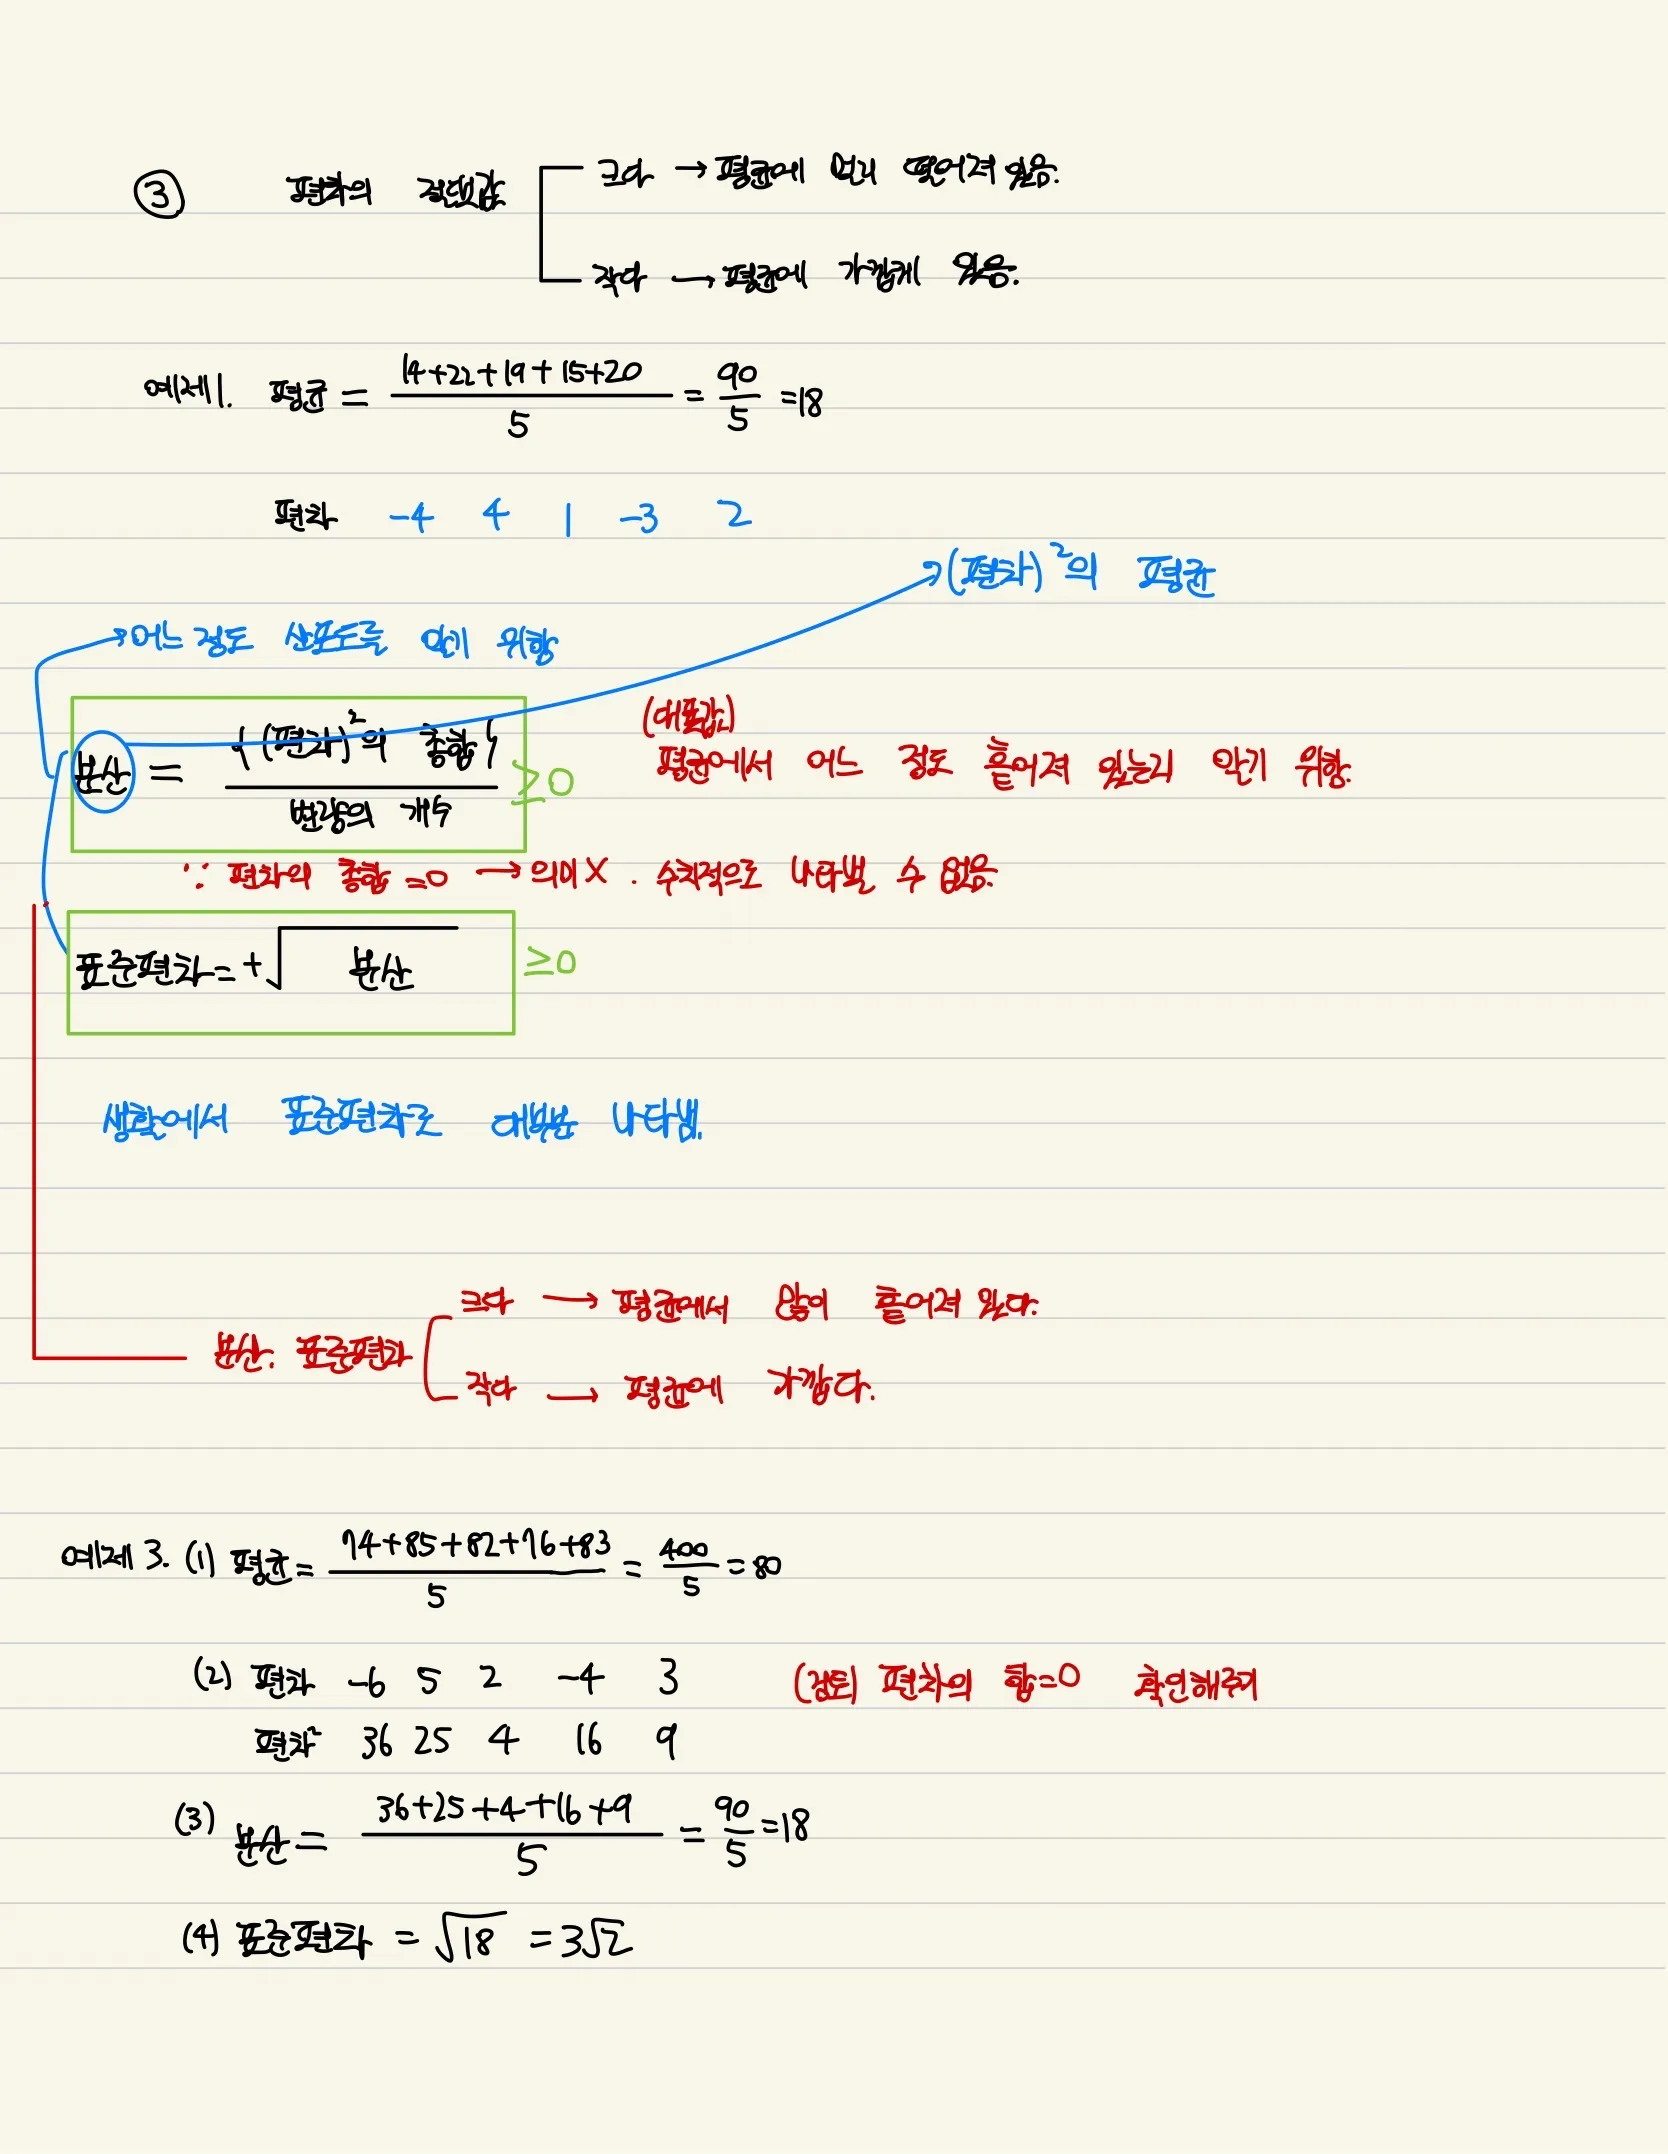 ③ 편차의 절댓값
크다 → 평균에 멀리 떨어져 있음.
작다 → 평균에 가깝게 있음.
예제1. 평균 = (14+22+19+15+20)/5 = 90/5 = 18
편차 -4 4 1 -3 2
(편차)²의 평균
어느 정도 산포도를 알기 위함
분산 = {(편차)²의 총합}/변량의 개수 ≥0
(대푯값)
평균에서 어느 정도 흩어져 있는지 알기 위함.
∵ 편차의 총합 =0 → 의미X. 수치적으로 나타낼 수 없음.
표준편차=+√분산 ≥0
생활에서 표준편차로 대부분 나타냄.
분산. 표준편차
크다 → 평균에서 많이 흩어져 있다.
작다 → 평균에 가깝다.
예제 3. (1) 평균 = (74+85+82+76+83)/5 = 400/5 = 80
(2) 편차 -6 5 2 -4 3 (검토) 편차의 합=0 확인해주기
편차² 36 25 4 16 9
(3) 분산 = (36+25+4+16+9)/5 = 90/5 = 18
(4) 표준편차 = √18 = 3√2